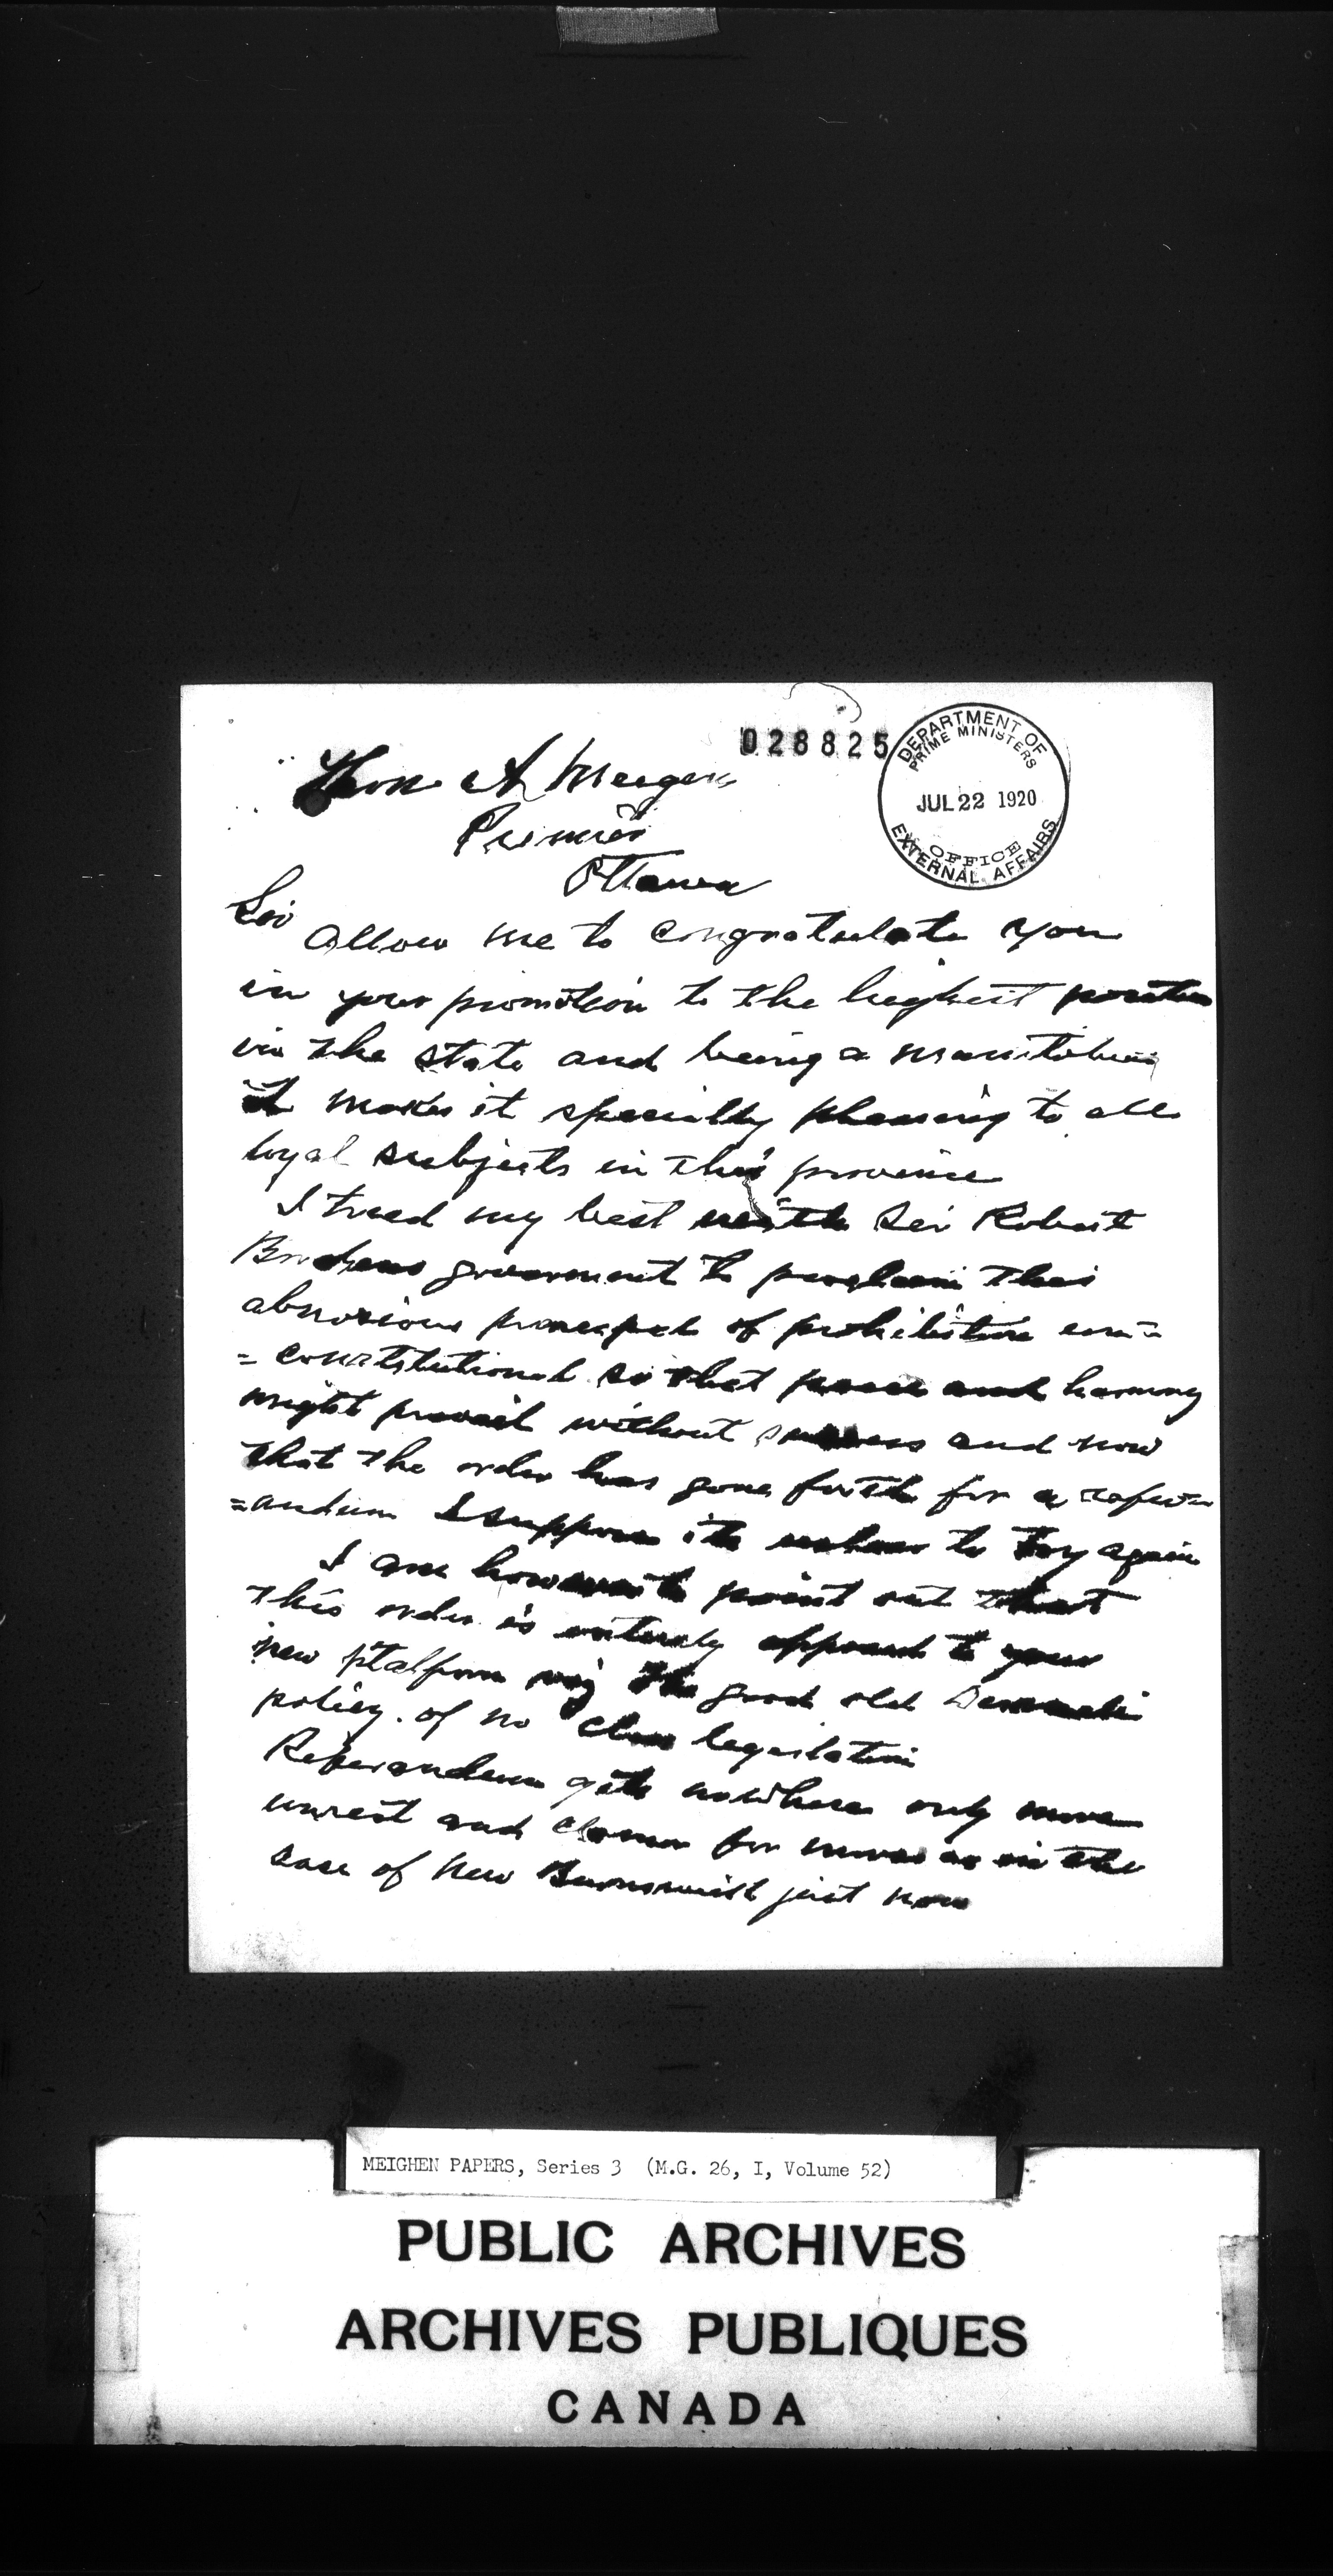 028825
DEPARTMENT OF
PRIME MINISTERS
JUL 22 1920
OFFICE
EXTERNAL AFFAIRS
Hon A Meegen
Premier
Ottawa
Sir
Allow me to congratulate you
in your promotion to the highest position
in the state and being a manitoban
it makes it specially pleasing to all
loyal subjects in this province
I tried my best with Sir Robert
Bordens government to proclaim this
abnoxious of prohibition un=
=constitutional so that peace and harmony
might prevail without success and now
that the order has gone forth for a refer=
=andum I suppose its useless to try again
I am however to point out that
this order is entirely opposed to your
new platform viz the good old Democratic
policy. of no class legislation
Referandum gets nowhere only more
unrest and clamor for more as in the
case of New Brunswick just now
MEIGHEN PAPERS, Series 3 (M.G. 26, I, Volume 52)
PUBLIC ARCHIVES
ARCHIVES PUBLIQUES
CANADA